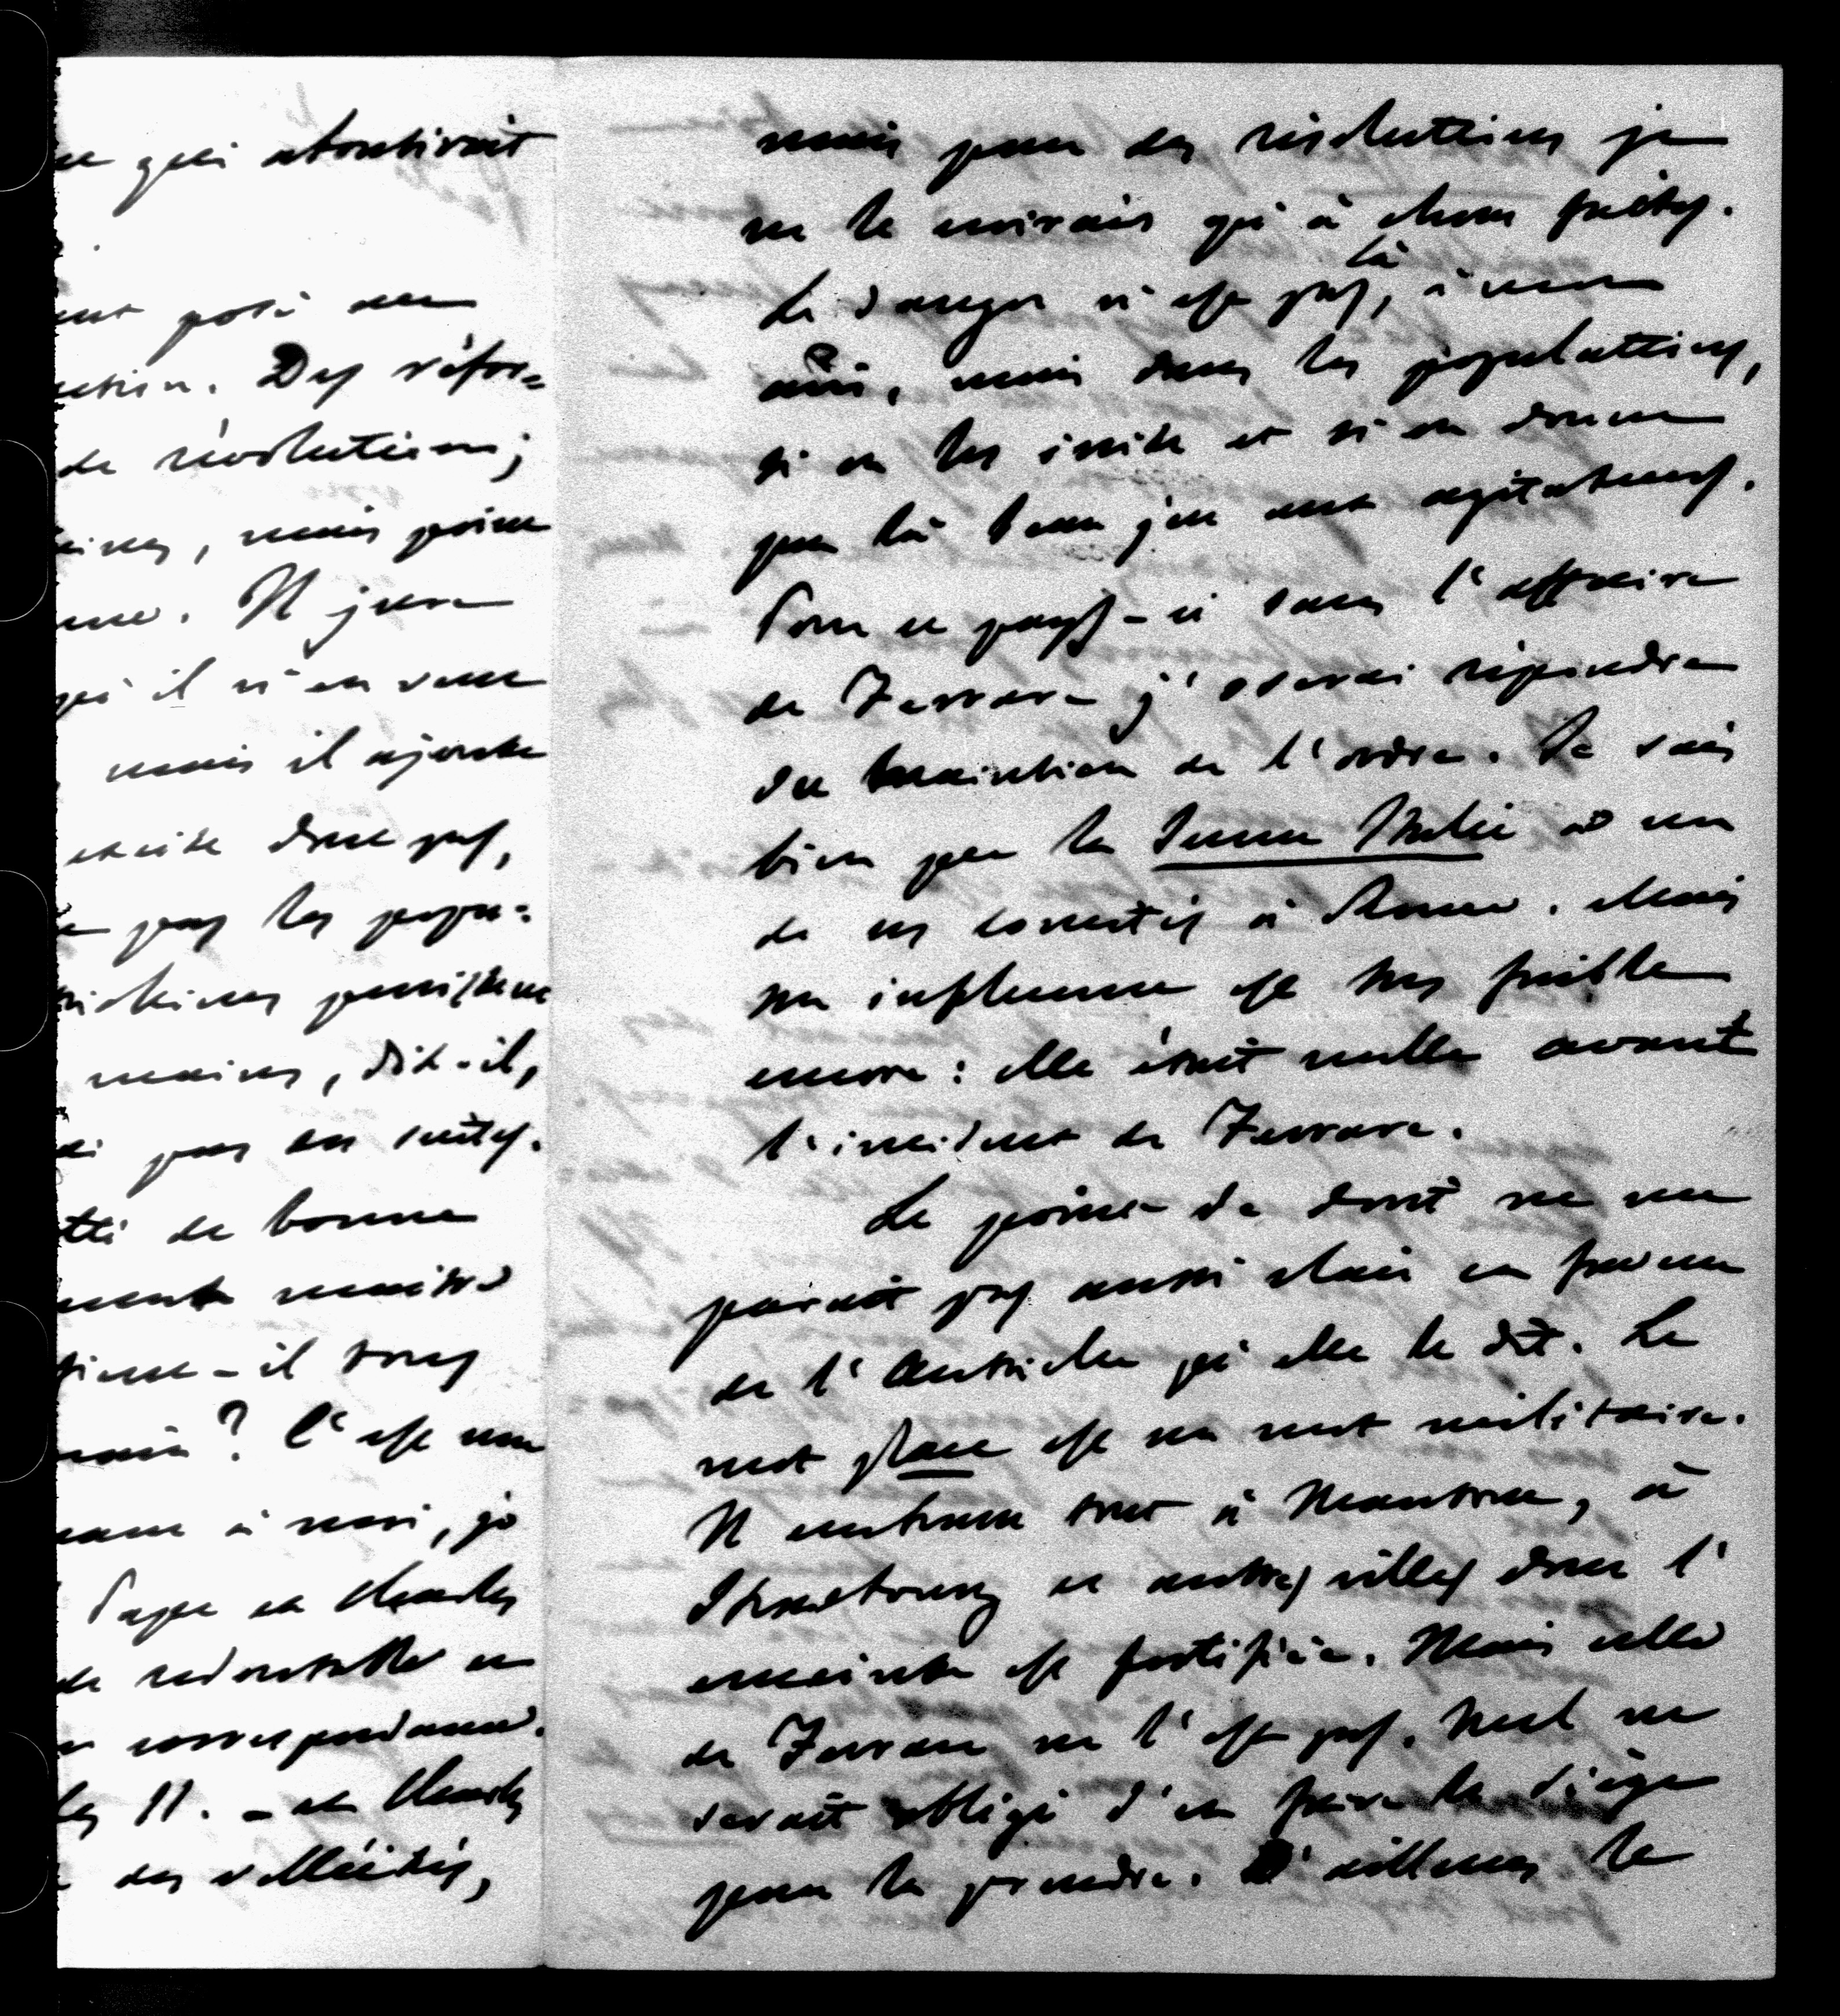 qui aboutirait
posé
Des réfor=
de révolution;
mais point
Il jure
qu'il n'en veut
mais il ajoute
donc pas,
pas les popu=
puissent
moins, dit-il,
pas en suites.
de bonne
-il tous
? C'est une
à moi, je
Pape et Charles
de redoutable en
correspondance.
II. - et Charles
des velléités,
mais pour des révolutions je
ne le croirais qu'à choses faites.
Le danger n'est pas là, à mon
avis, mais dans les populations,
si on les irrite et si on donne
par là beau jeu aux agitateurs.
Pour ce pays-ci sans l'affaire
de Ferrare j'oserai répondre
du maintien de l'ordre. Je sais
bien que la Jeune Italie a un
de ses comités à Rome. Mais
son influence est très faible
encore: elle était nulle avant
l'incident de Ferrare.
Le point de droit ne me
parait pas aussi clair en faveur
de l'Autriche qu'elle le dit. Le
mot place est un mot militaire.
Il entraine tout à Mantoue, à
Strasbourg et autres villes dont l'
enceinte est fortifiée. Mais celle
de Ferrare ne l'est pas. Nul ne
serait obligé d'en faire le siège
pour la prendre. D'ailleurs le